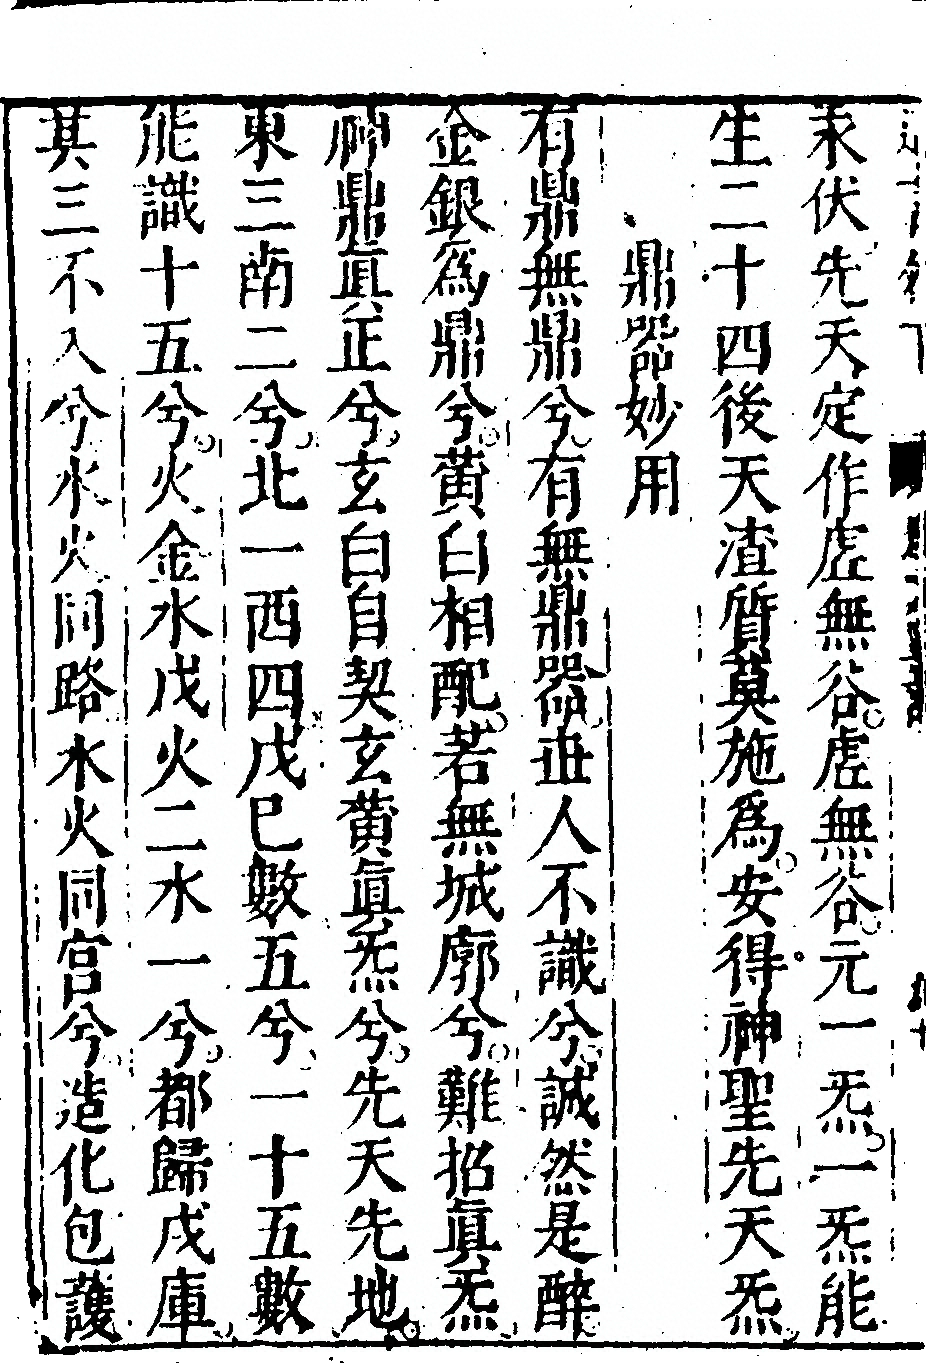 汞伏先天定作虛無谷虛無谷元一炁一炁能
生二十四後天渣質莫施爲安得神聖先天炁
鼎器妙用
有鼎無鼎兮有無鼎器世人不識兮誠然是醉
金銀爲鼎兮黃白相配若無城廓兮難招眞炁
神鼎眞正兮玄白自契玄黃眞炁兮先天先地
東三南二兮北一西四戊巳數五兮一十五數
能識十五兮火金水戊火二水一兮都歸戊庫
其三不入兮水火同路水火同宫兮造化包護